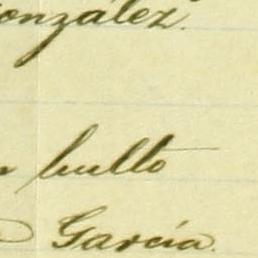 onzález.
bulto
García.